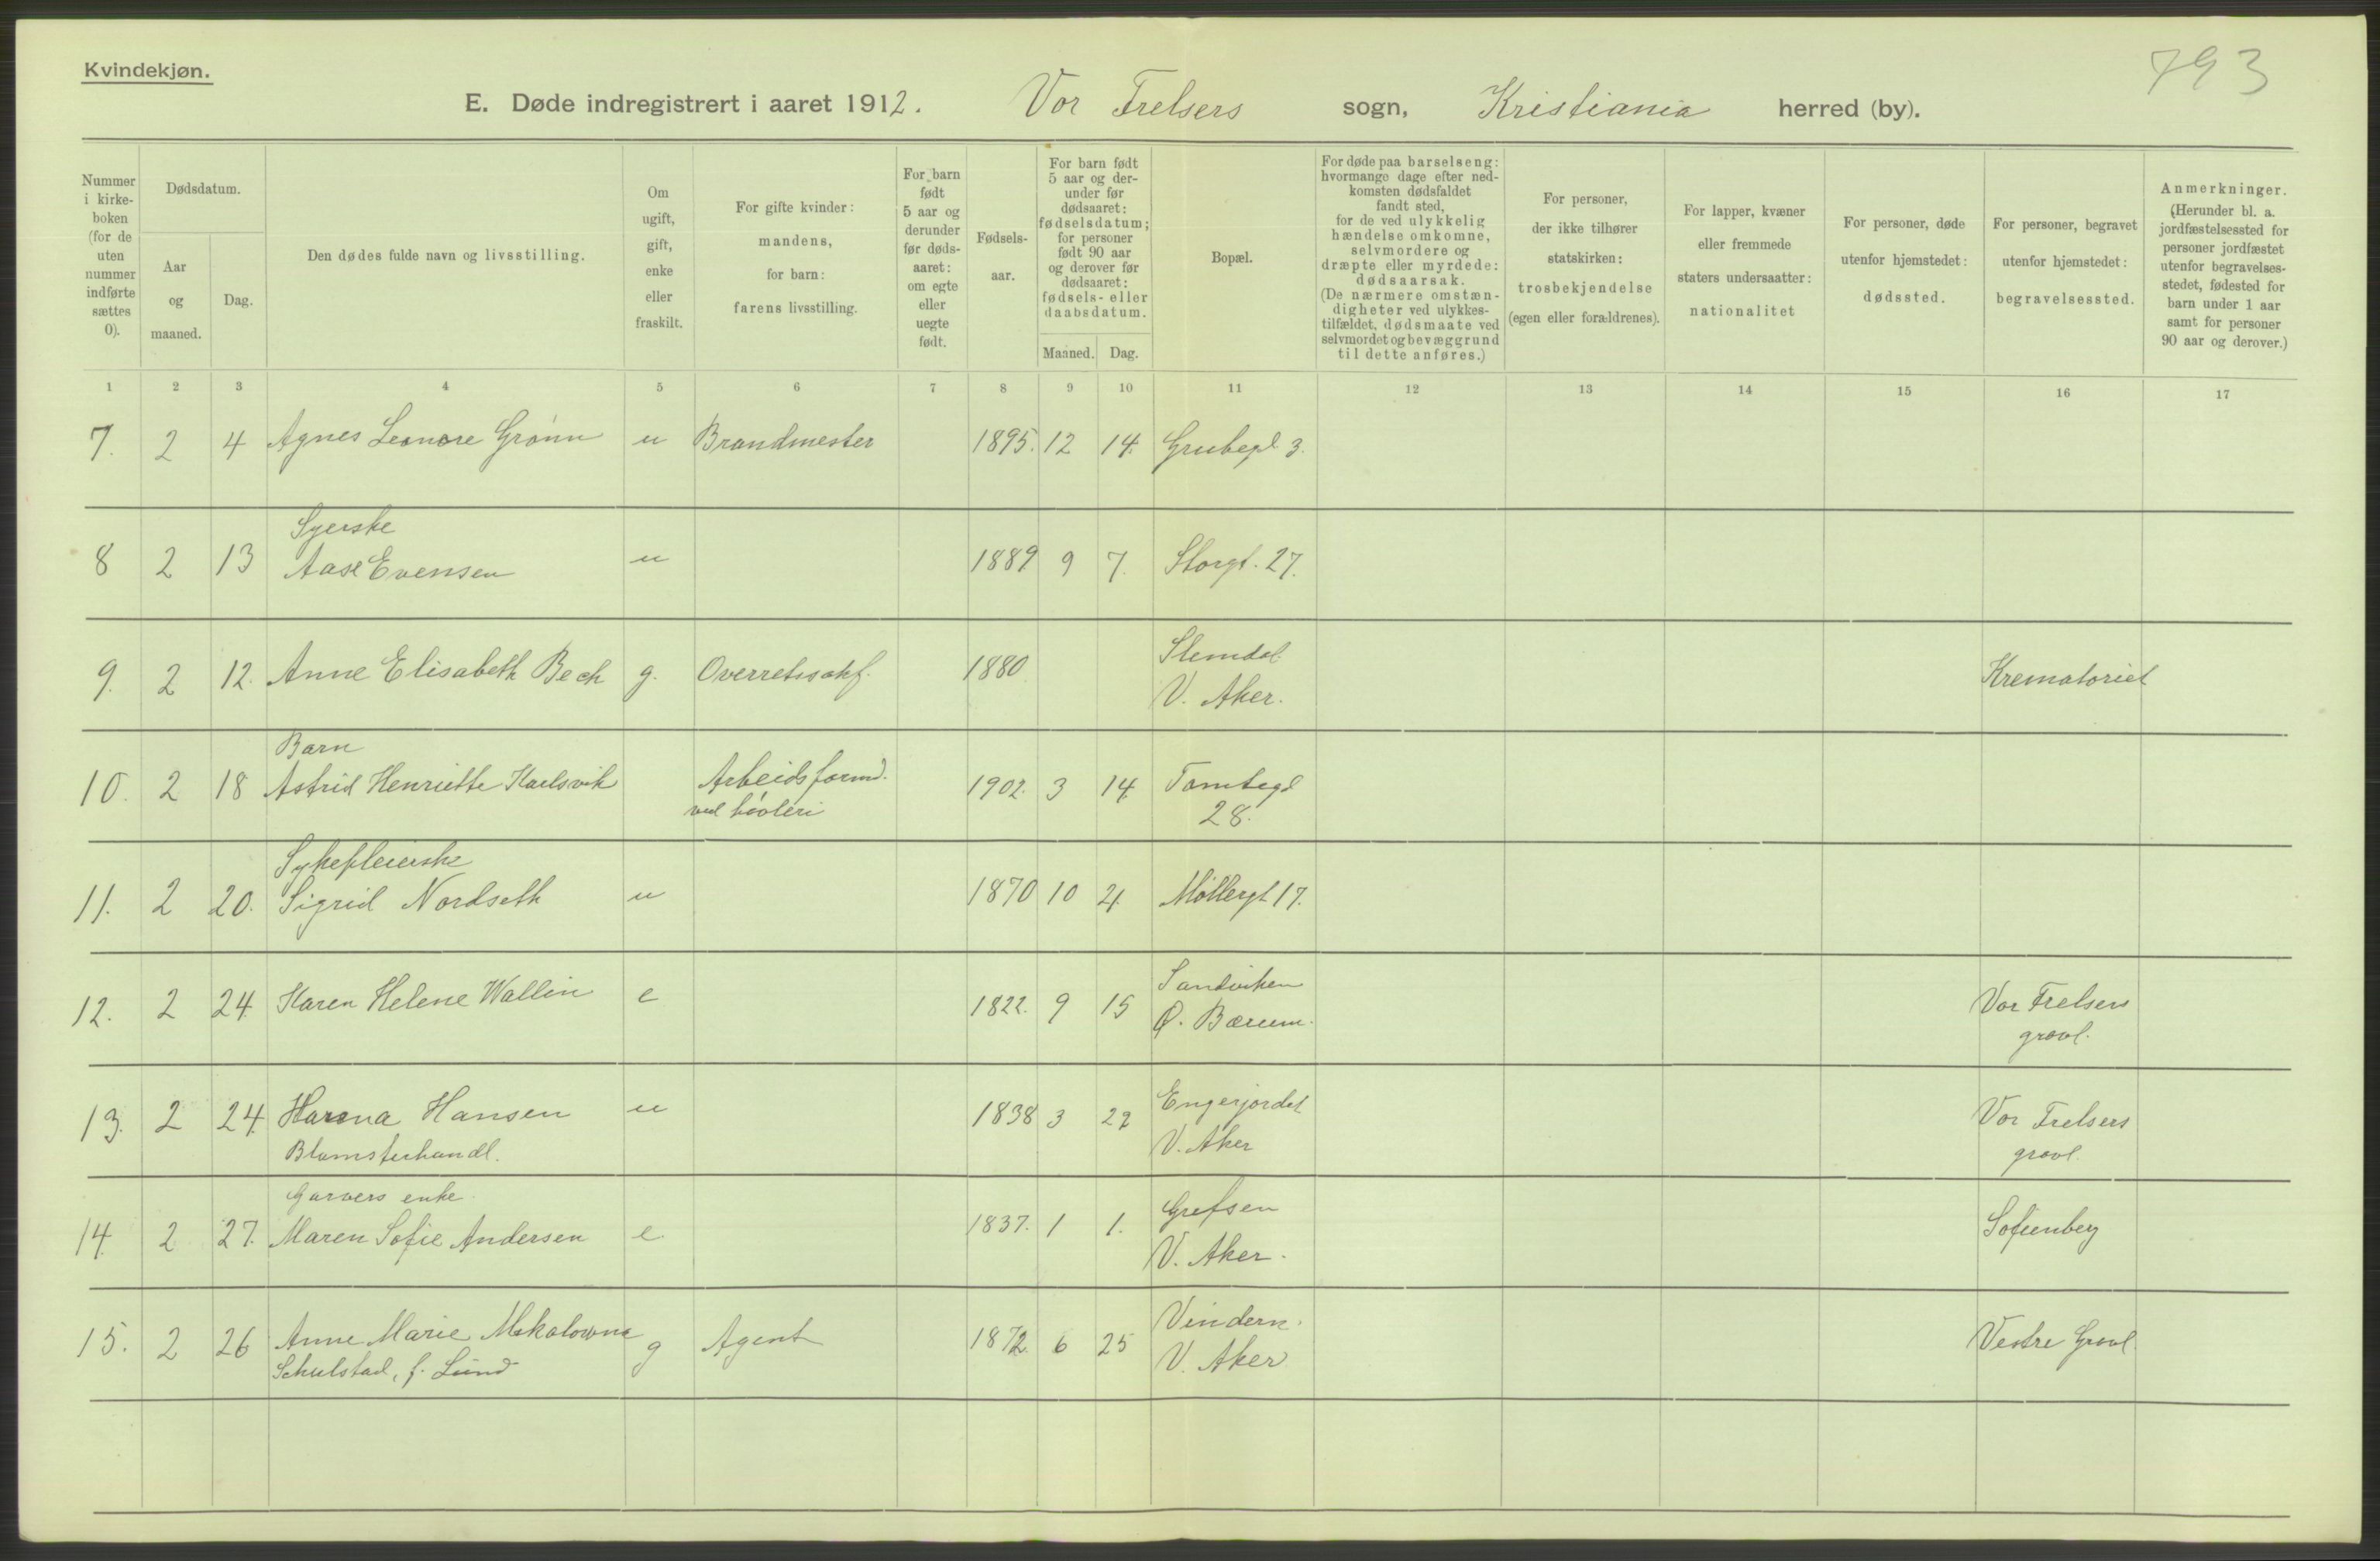 Kvindekjøn.
793
E. Døde indregistrert i aaret 1912. Vor Frelsers sogn, Kristiania herred (by).
Nummer i kirke-boken (for de uten nummer indførte sættes 0).
Dødsdatum.
Aar og maaned.
Dag.
Den dødes fulde navn og livsstilling.
Om ugift, gift, enke eller fraskilt.
For gifte kvinder: mandens, for barn: farens livsstilling.
For barn født 5 aar og derunder før døds-aaret: om egte eller uegte født.
Fødsels-aar.
For barn født 5 aar og der-under før dødsaaret: fødselsdatum; for personer født 90 aar og derover før dødsaaret: fødsels- eller daabsdatum.
Maaned. Dag.
Bopæl.
For døde paa barselseng: hvormange dage efter ned-komsten dødsfaldet fandt sted, for de ved ulykkelig hændelse omkomne, selvmordere og dræpte eller myrdede: dødsaarsak. (De nærmere omstæn-digheter ved ulykkes-tilfældet, dødsmaate ved selvmordet og bevæggrund til dette anføres.)
For personer, der ikke tilhører statskirken: trosbekjendelse (egen eller forældrenes).
For lapper, kvæner eller fremmede staters undersaatter: nationalitet
For personer, døde utenfor hjemstedet: dødssted.
For personer, begravet utenfor hjemstedet: begravelsessted.
Anmerkninger. (Herunder bl. a. jordfæstelsessted for personer jordfæstet utenfor begravelses-stedet, fødested for barn under 1 aar samt for personer 90 aar og derover.)
1 2 3 4 5 6 7 8 9 10 11 12 13 14 15 16 17
7. 2 4 Agnes Leonore Grønn u Brandmester 1895. 12 14. Grubegt. 3.
Syerske
8 2 13 Aase Evensen u 1889 9 7. Storgt. 27.
Slemdal
9. 2 12. Anne Elisabeth Bech g. Overretssakf. 1880 V. Aker. Krematoriet
Barn
10. 2 18 Astrid Henriette Karlsvik Arbeidsformd. 1902. 3 14. Tomtegt
ved høvleri 28.
Sykepleierske
11. 2 20. Sigrid Nordseth u 1870 10 21. Møllergt 17.
Sandviken
12. 2 24. Karen Helene Wallin e 1822. 9 15 Ø. Bærum. Vor Frelsers
gravl.
13. 2 24. Hansen u 1838 3 22 Engerjordet Vor Frelsers
Blomsterhandl. V. Aker gravl.
Garvers enke Grefsen
14. 2 27. Maren Sofie Andersen e. 1837. 1 1. V. Aker. Sofienberg
Vindern.
15. 2 26 Anne Marie g Agent 1872. 6 25 V. Aker Vestre Gravl.
Schulstad, f. Lund